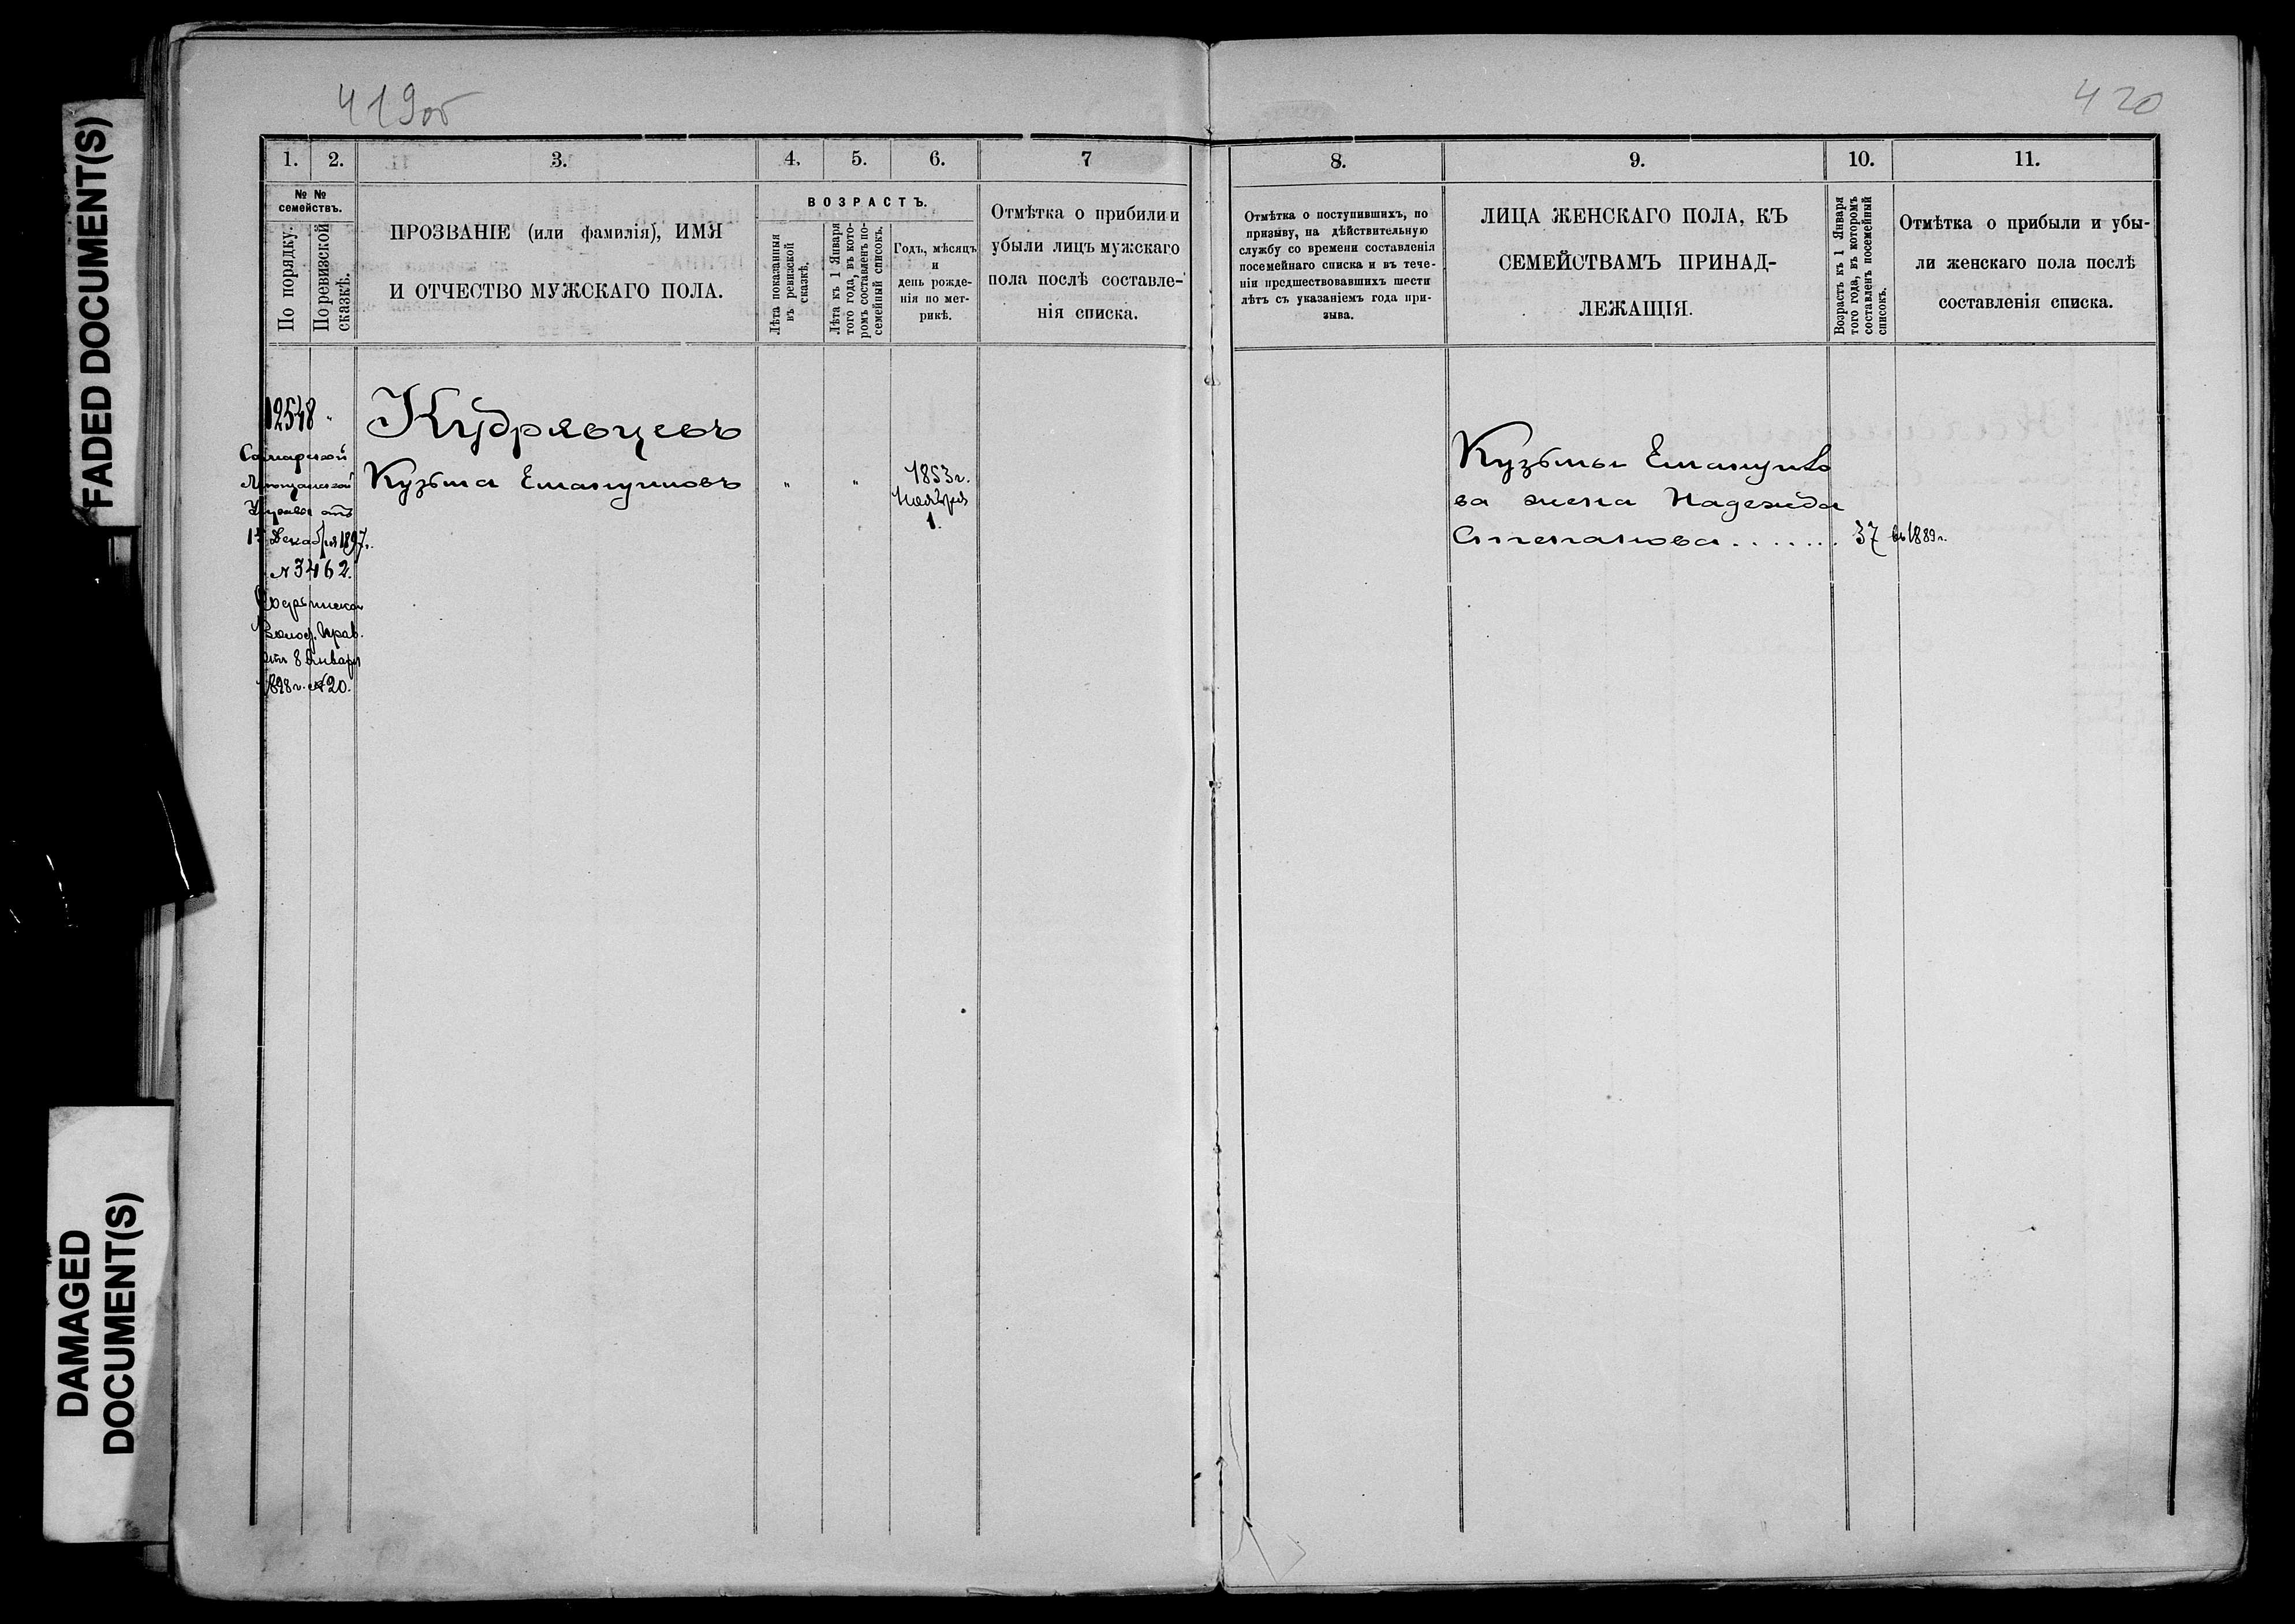 419об
420
FADED DOCUMENT(S)
DAMAGED
DOCUMENT(S)
1.
2.
3.
4.
5.
6.
7
№ №
семействъ.
По порядку.
По ревизской
сказкѣ.
ПРОЗВАНІЕ (или фамилія), ИМЯ
И ОТЧЕСТВО МУЖСКАГО ПОЛА.
ВОЗРАСТЪ.
Лѣта показанныя
въ ревизской
сказкѣ.
Лѣта къ 1 Января
того года, въ кото-
ромъ составленъ по-
семейный списокъ.
Годъ, мѣсяцъ
и
день рожде-
нія по мет-
рикѣ.
Отмѣтка о прибыли и
убыли лицъ мужскаго
пола послѣ составле-
нія списка.
12548 "
Самарской
Мѣщанской
Управы отъ
Декабря 1897г.
№ 3462.
Волос. Прав.
отъ 8 Января
1898 г. № 20.
Кудрявцевъ
Кузьма Емануиловъ
"
"
1853 г.
Ноября
1.
8.
9.
10.
11.
Отмѣтка о поступившихъ, по
призыву, на дѣйствительную
службу со времени составленія
посемейнаго списка и въ тече-
ніи предшествовавшихъ шести
лѣтъ съ указаніемъ года при-
зыва.
ЛИЦА ЖЕНСКАГО ПОЛА, КЪ
СЕМЕЙСТВАМЪ ПРИНАД-
ЛЕЖАЩІЯ.
Возрастъ къ 1 Января
того года, въ которомъ
составленъ посемейный
списокъ.
Отмѣтка о прибыли и убы-
ли женскаго пола послѣ
составленія списка.
Кузьмы Емануило
ва жена Надежда
Степанова . . . . . . . 37 въ 1889 г.